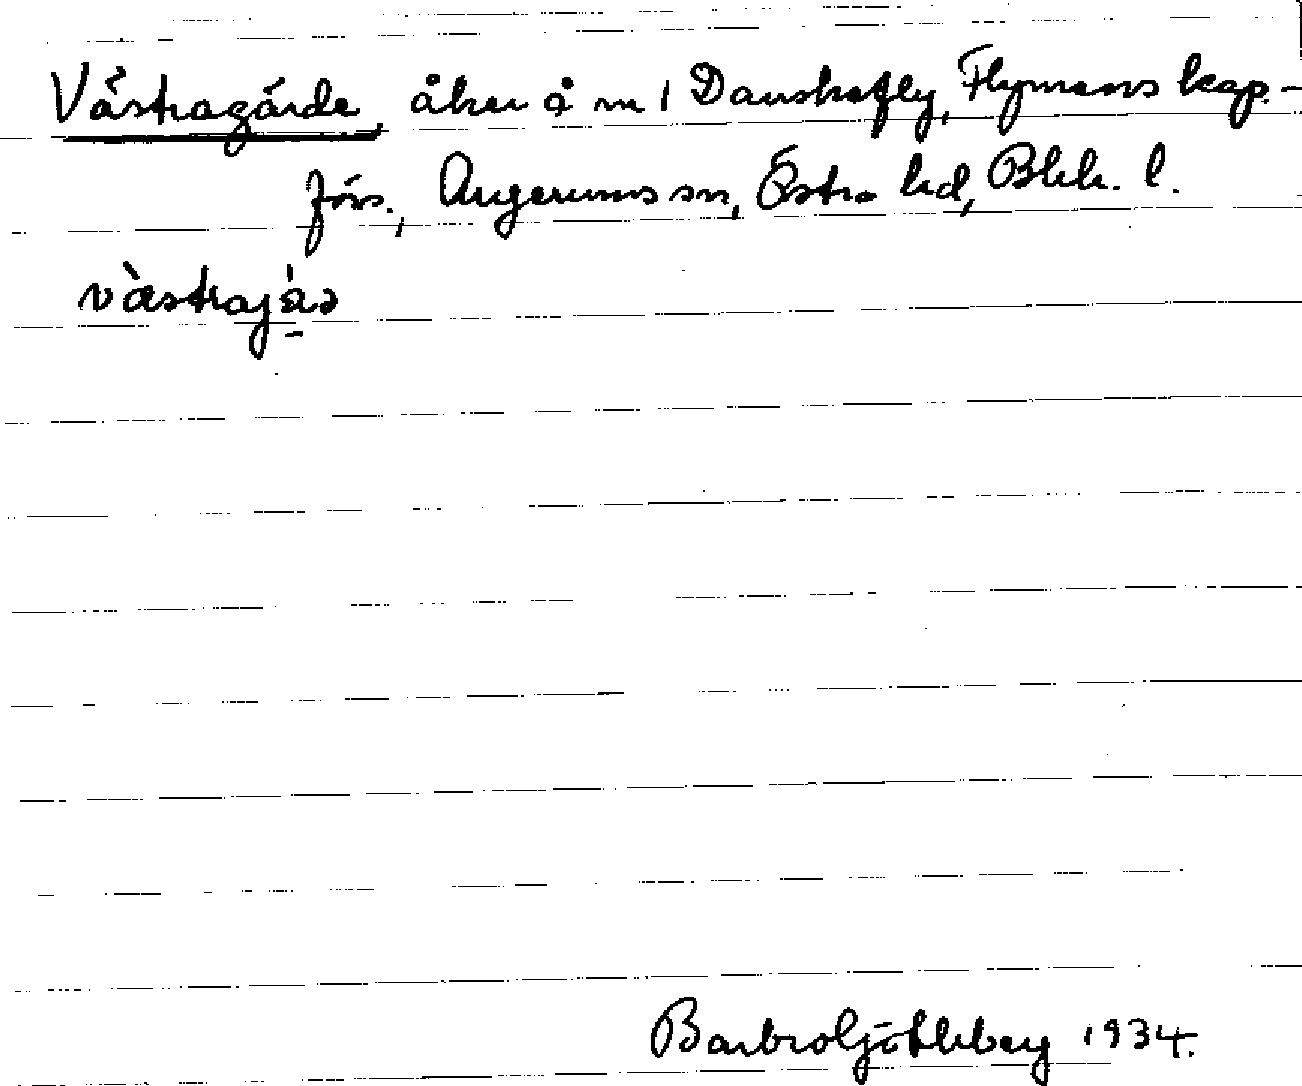 Västragärde, åker å nr 1 Danskefly, Flymens kap.-
förs., Augerums sn, Östra hd, Blek. l.
vàstrajás
Barbro Ljökleberg 1934.